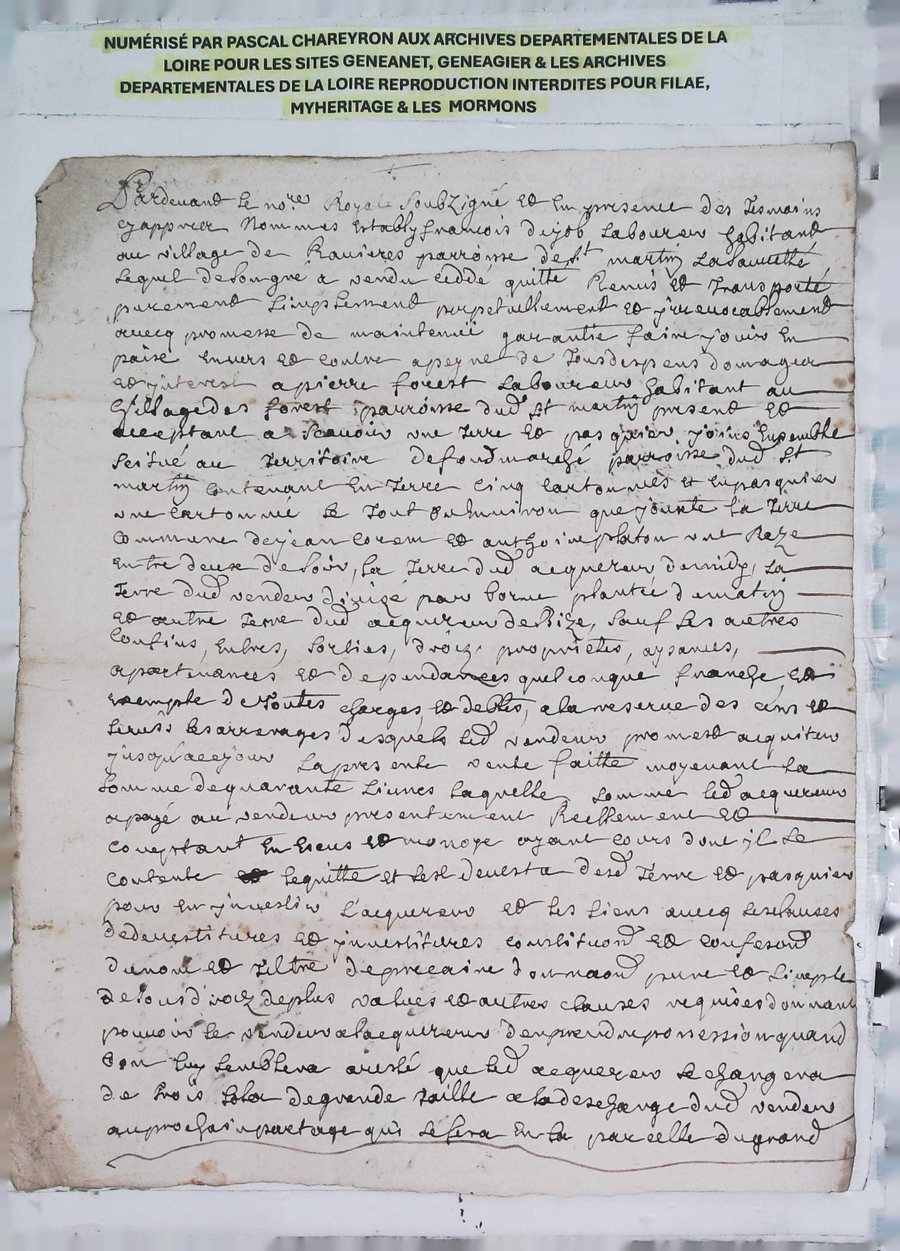 NUMÉRISÉ PAR PASCAL CHAREYRON AUX ARCHIVES DEPARTEMENTALES DE LA
LOIRE POUR LES SITES GENEANET, GENEAGIER & LES ARCHIVES
DEPARTEMENTALES DE LA LOIRE REPRODUCTION INTERDITES POUR FILAE,
MYHERITAGE & LES MORMONS
Pardevant le nore Royal Soubzigné et en presence des Tesmoins
cy apprez Nommes Estably francois dejob Laboureur habitant
au village de Ravieres parroisse de st martin Lasauveté
Lequel de son gré a vendu ceddé quitté Remis et Transporté
purement Simplement perpetuellement et jrrevocablement
avecq promesse de maintenir garantir faire jouir En
paise Envers et contre a peyne de Tous despens domages
et jnterest a pierre forest Laboureur habitant au
Village des forest parroisse dud st martin present et
acceptant a Scavoir une Terre et pasquier joins Ensemble
Scitué au Territoire de fondmarché parroisse dud st
martin contenant En Terre Cinq Cartonnés et En pasquier
une Cartonné Le Tout ou Environ que jouxte La Terre
Commune de jean Corem et anthoine platon une Raze
Entre deux de Soir, La Terre dud acquereur de midy, La
Terre dud vendeur divizé par borne plantée de matin
et autre Terre dud acquereur de Bize, Sauf Les autres
Confins, Entres, Sorties, droiz proprietes, aysances,
apartenances et dependances quelconque franche et
Exempte de Toutes charges, et debtes, a la reserve des cens et
Servis Les arrerages desquels Led vendeur promest acquiter
jusqu'a ce jour La presente vente faitte moyenant La
Somme de quarante Livres Laquelle Somme Led acquereur
a payé au vendeur presentement Reellement et
Comptant En Escus et monoye ayant cours dont jl Se
Contente et Le quitte et Sest devestu desd Terre et pasquier
pour En jnvestir L'acquereur et Les Siens avecq Les clauses
de devestitures et jnvestitures constituond et confesond
du nom et Tiltre de precaire donnaond pure et Simple
de Tous droiz de plus values et autres clauses requises donnant
pouvoir Le vendeur a Lacquereur d'en prendre possession quand
bon Luy Semblera aresté que Led acquereur Se chargera
de Trois Solz de grande Taille a La descharge dud vendeur
au prochain partage qui Se fera En La parcelle du grand